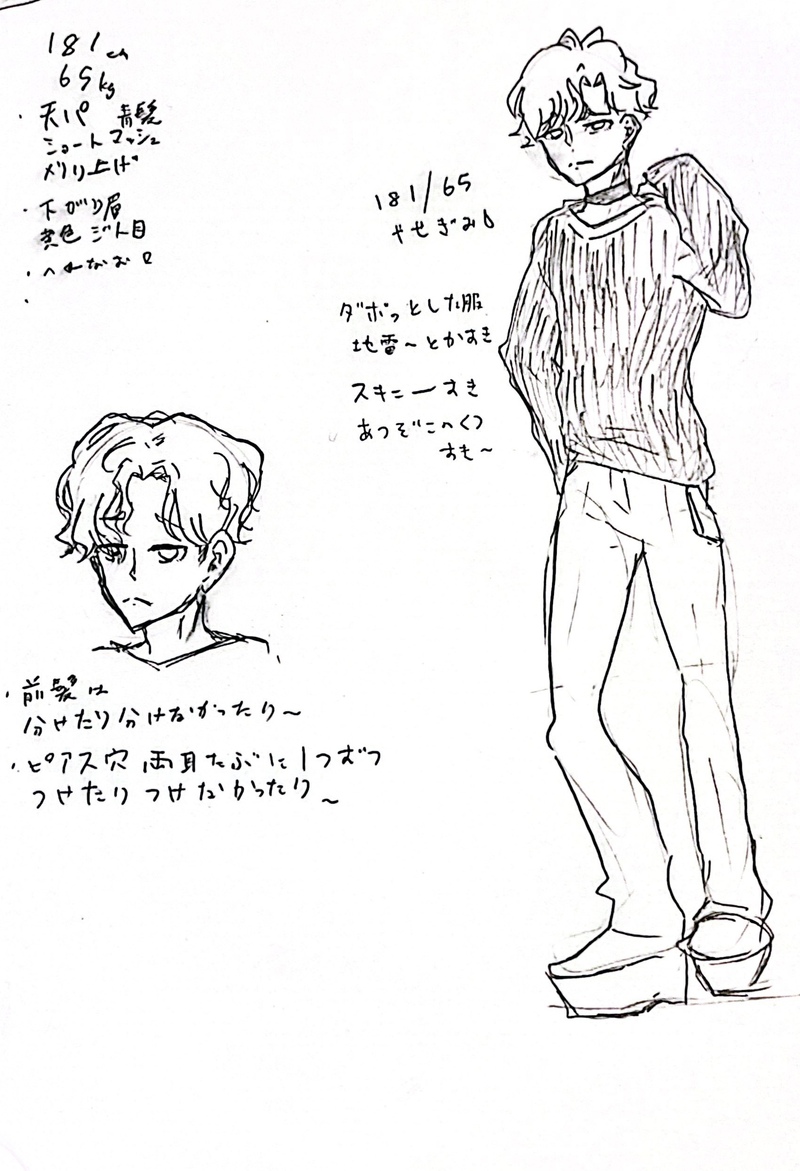 181cm
65kg
・天パ 青髪
ショートマッシュ
刈り上げ
・下がり眉
黄色 ジト目
・へ
・
181/65
やせぎみ
ダボっとした服
地雷〜とかすき
スキニーすき
あつぞこのくつ
すも〜
・前髪は
分けたり分けなかったり〜
・ピアス穴 両耳たぶに1つずつ
つけたりつけなかったり〜